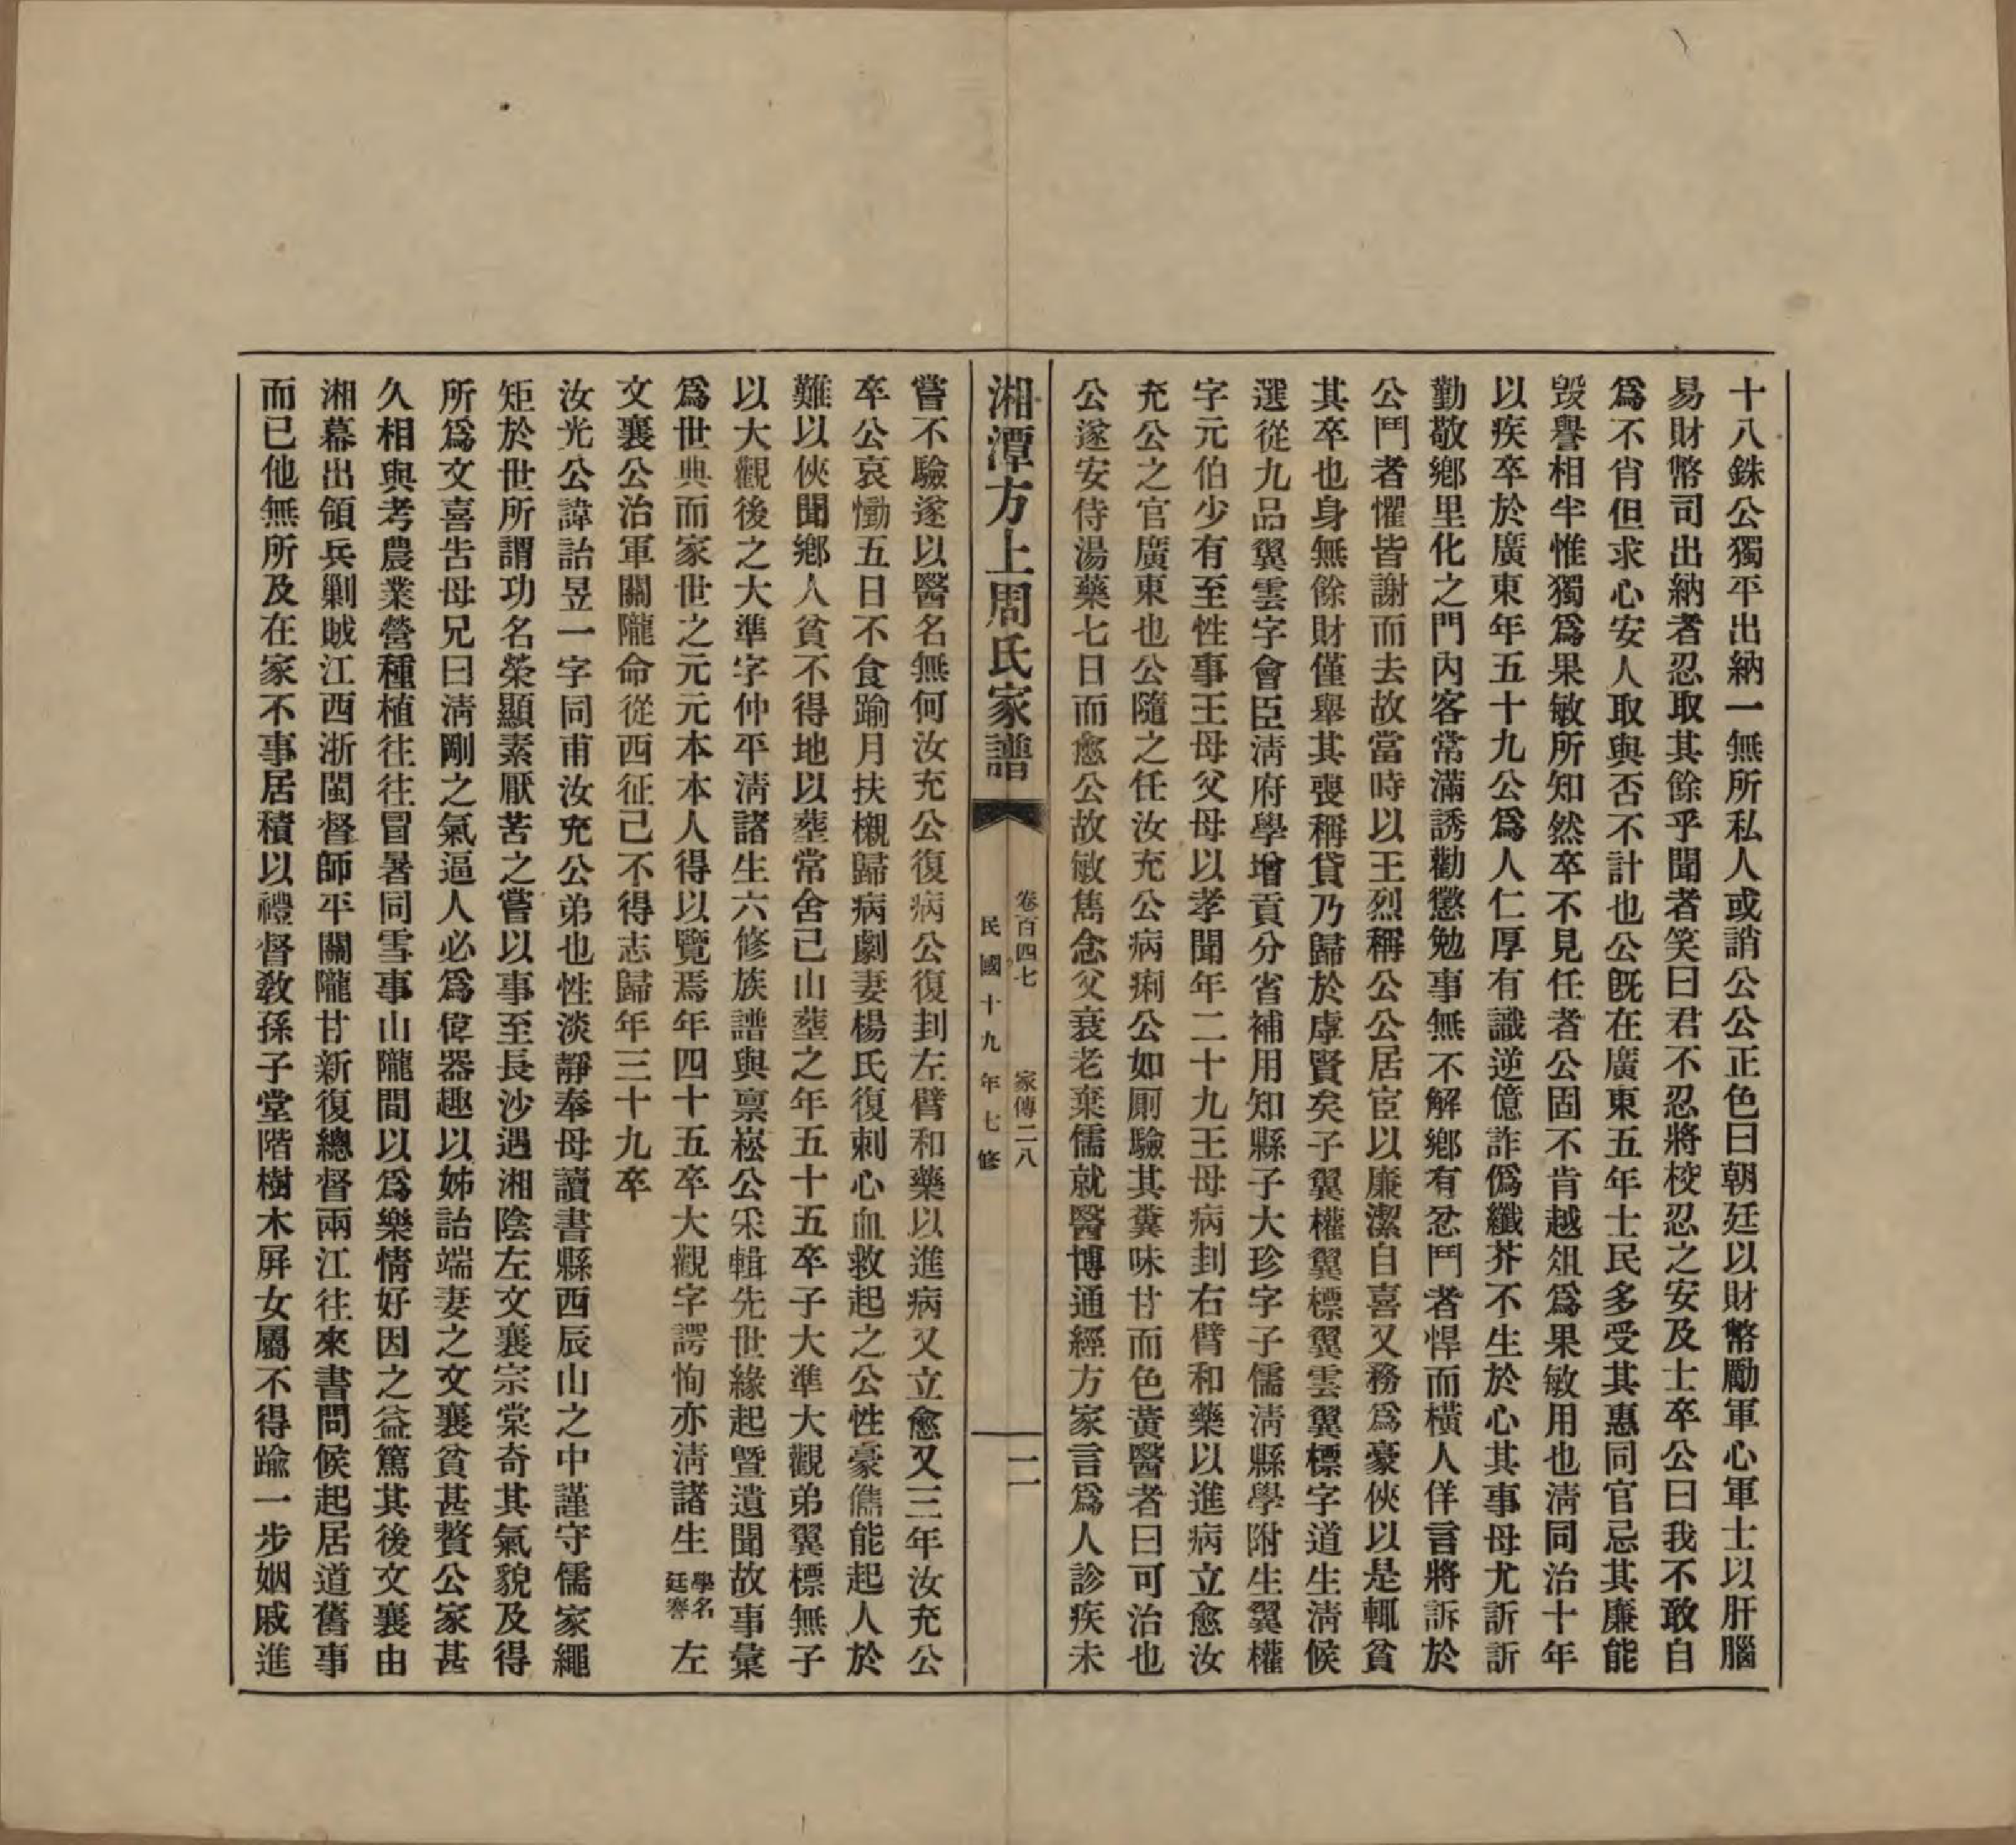 十八銖公獨平出納一無所私人或誚公公正色曰朝廷以財幣勵軍心軍士以肝腦
易財幣司出納者忍取其餘乎聞者笑曰君不忍將校忍之安及士卒公曰我不敢自
爲不肖但求心安人取與否不計也公旣在廣東五年士民多受其惠同官忌其廉能
毀譽相半惟獨爲果敏所知然卒不見任者公固不肯越俎爲果敏用也淸同治十年
以疾卒於廣東年五十九公爲人仁厚有識逆億詐僞纖芥不生於心其事母尤訢訢
勤敬鄕里化之門內客常滿誘勸懲勉事無不解鄕有忿鬥者悍而橫人佯言將訴於
公鬥者懼皆謝而去故當時以王烈稱公公居宦以廉潔自喜又務爲豪俠以是輒貧
其卒也身無餘財僅舉其喪稱貸乃歸於虖賢矣子翼權翼標翼雲翼標字道生淸候
選從九品翼雲字會臣淸府學增貢分省補用知縣子大珍字子儒淸縣學附生翼權
字元伯少有至性事王母父母以孝聞年二十九王母病刲右臂和藥以進病立愈汝
充公之官廣東也公隨之任汝充公病痢公如厠驗其糞味甘而色黃醫者曰可治也
公遂安侍湯藥七日而愈公故敏雋念父衰老棄儒就醫博通經方家言爲人診疾未
湘潭方上周氏家譜
卷百四七
家傳二八
民國十九年七修
一一
嘗不驗遂以醫名無何汝充公復病公復刲左臂和藥以進病又立愈又三年汝充公
卒公哀慟五日不食踰月扶櫬歸病劇妻楊氏復刺心血救起之公性豪儁能起人於
難以俠聞鄕人貧不得地以葬常舍己山葬之年五十五卒子大準大觀弟翼標無子
以大觀後之大準字仲平淸諸生六修族譜與禀崧公采輯先世緣起暨遺聞故事彙
爲世典而家世之元元本本人得以覽焉年四十五卒大觀字諤恂亦淸諸生學名廷謇左
文襄公治軍關隴命從西征己不得志歸年三十九卒
汝光公諱詒昱一字同甫汝充公弟也性淡靜奉母讀書縣西辰山之中謹守儒家繩
矩於世所謂功名榮顯素厭苦之嘗以事至長沙遇湘陰左文襄宗棠奇其氣貌及得
所爲文喜告母兄曰淸剛之氣逼人必爲偉器趣以姊詒端妻之文襄貧甚贅公家甚
久相與考農業營種植往往冒暑同雪事山隴間以爲樂情好因之益篤其後文襄由
湘幕出領兵剿賊江西浙閩督師平關隴甘新復總督兩江往來書問候起居道舊事
而已他無所及在家不事居積以禮督敎孫子堂階樹木屛女屬不得踰一步姻戚進